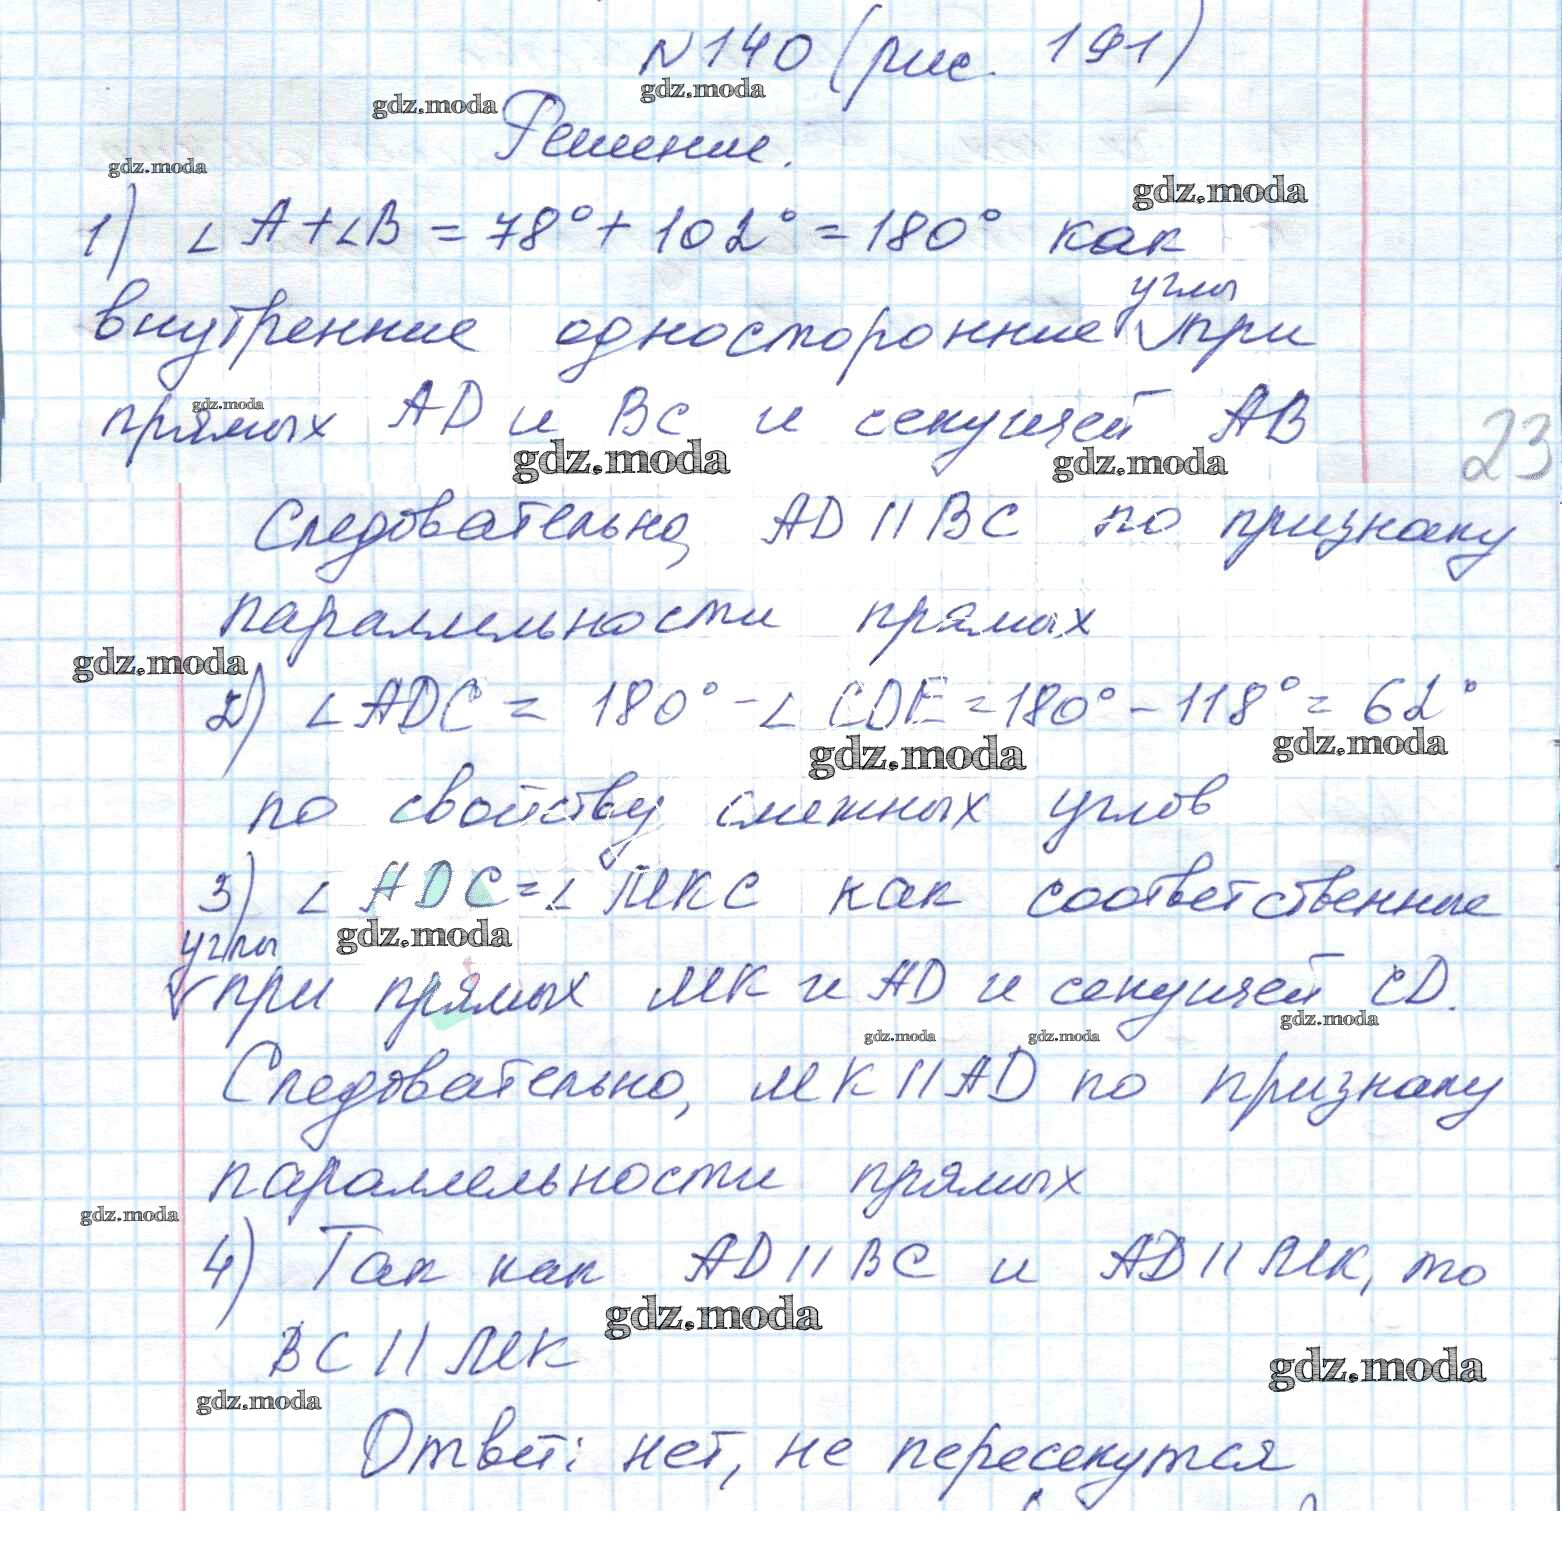 №140 (рис. 191)
gdz.moda
gdz.moda
Решение.
gdz.moda
gdz.moda
1) ∠A+∠B = 78°+102° = 180° как
углы
внутренние односторонние ∨ при
gdz.moda
прямых AD и BC и секущей AB
gdz.moda
gdz.moda
23
Следовательно, AD || BC по признаку
параллельности прямых
gdz.moda
2) ∠ADC = 180° - ∠CDE = 180° - 118° = 62°
gdz.moda
gdz.moda
по свойству смежных углов
3) ∠ADC = ∠MKC как соответственные
углы
gdz.moda
∨ при прямых MK и AD и секущей CD.
gdz.moda
gdz.moda
gdz.moda
Следовательно, MK || AD по признаку
параллельности прямых
gdz.moda
4) Так как AD || BC и AD || MK, то
gdz.moda
BC || MK
gdz.moda
gdz.moda
Ответ: нет, не пересекутся